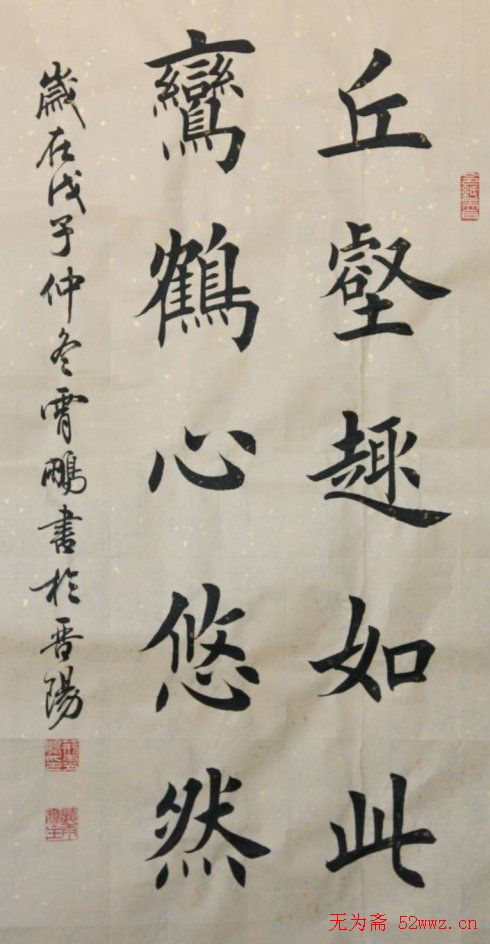 丘壑趣如此
鸞鶴心悠然
歲在戊子仲冬霄鵬書於晋陽
无为斋 52wwz.cn